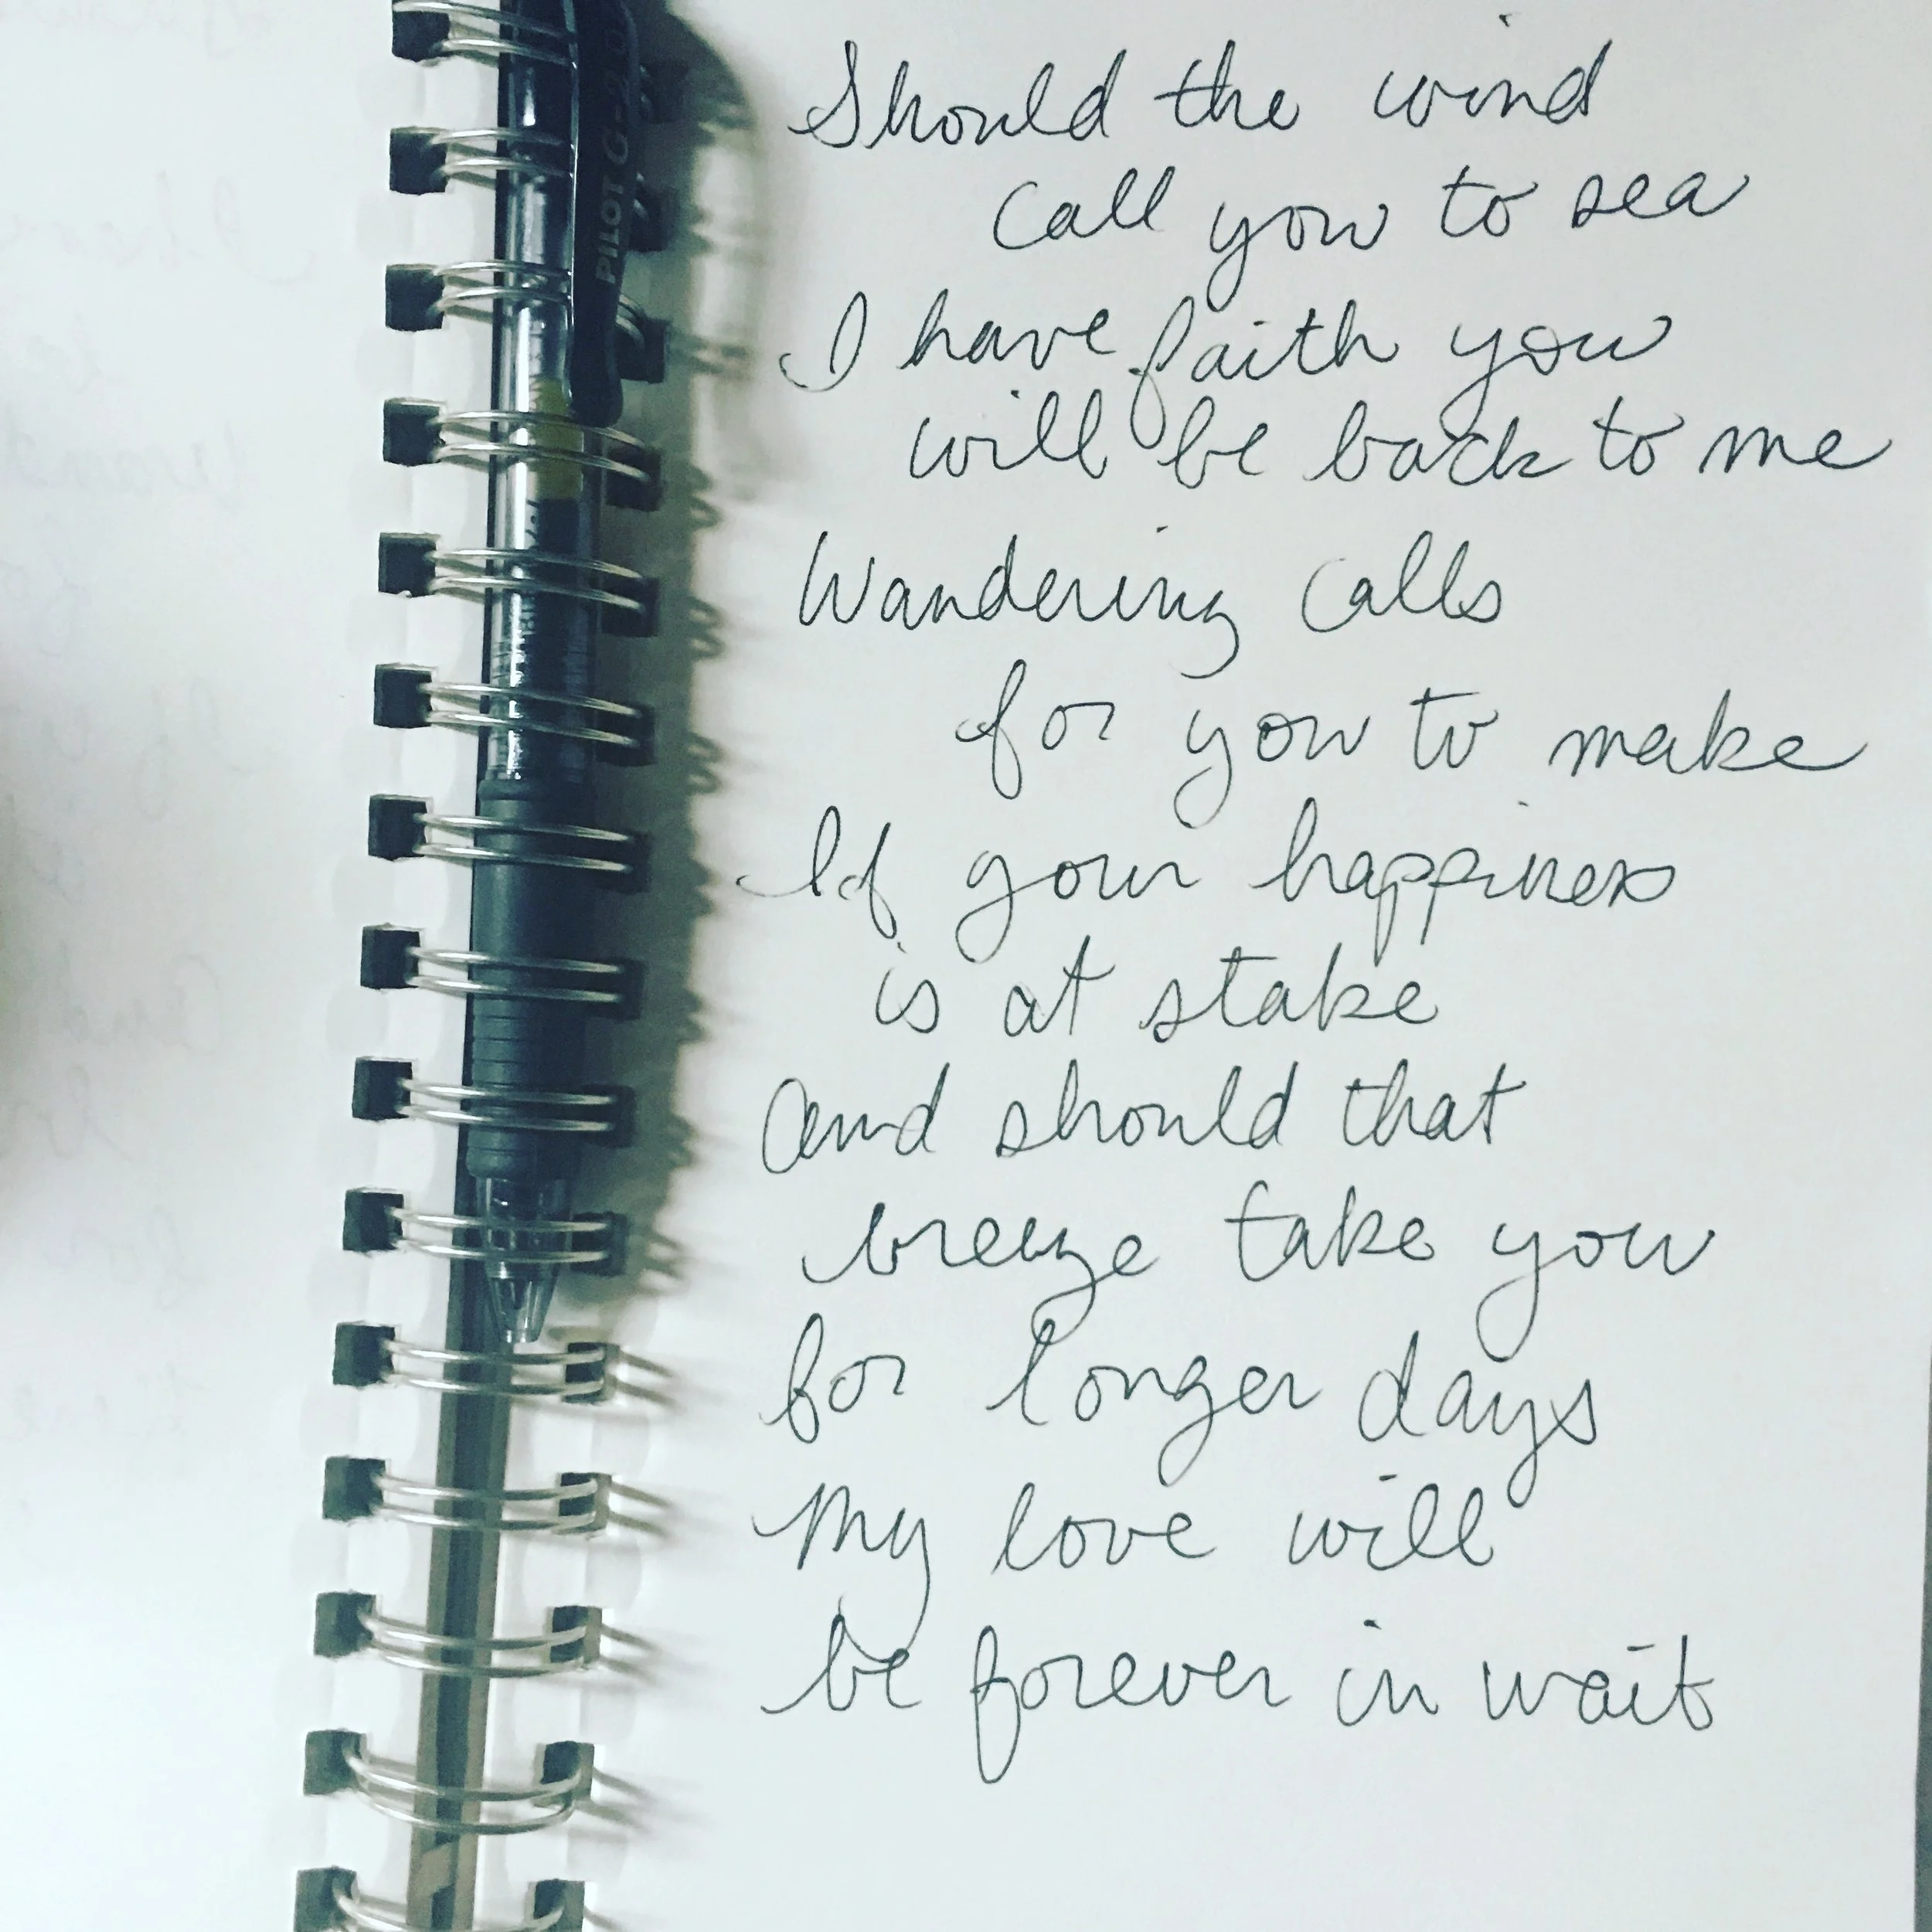 PILOT G-2 0
Should the wind
call you to sea
I have faith you
will be back to me
Wandering calls
for you to make
If your happiness
is at stake
and should that
breeze take you
for longer days
My love will
be forever in wait